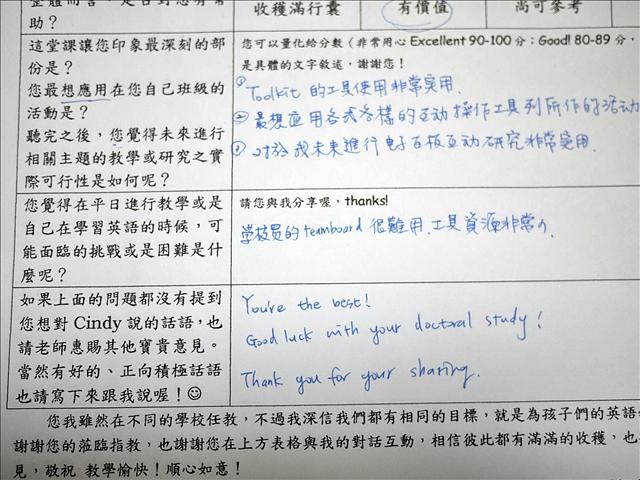 整體而言，是否對您有幫
助？
收穫滿行囊 有價值 尚可參考
這堂課讓您印象最深刻的部
份是？
您最想應用在您自己班級的
活動是？
聽完之後，您覺得未來進行
相關主題的教學或研究之實
際可行性是如何呢？
您可以量化給分數（非常用心 Excellent 90-100 分；Good! 80-89 分，
是具體的文字敘述，謝謝您！
① Toolkit 的工具使用非常实用.
② 最想应用各式各樣的互动操作工具列所作的活动
③ 对於我未來進行电子白板互动研究非常实用.
您覺得在平日進行教學或是
自己在學習英語的時候，可
能面臨的挑戰或是困難是什
麼呢？
請您與我分享喔，thanks!
学校買的 teamboard 很難用、工具資源非常少.
如果上面的問題都沒有提到
您想對 Cindy 說的話語，也
請老師惠賜其他寶貴意見。
當然有好的、正向積極話語
也請寫下來跟我說喔！☺
You're the best!
Good luck with your doctoral study!
Thank you for your sharing.
您我雖然在不同的學校任教，不過我深信我們都有相同的目標，就是為孩子們的英語
謝謝您的蒞臨指教，也謝謝您在上方表格與我的對話互動，相信彼此都有滿滿的收穫，也
見，敬祝 教學愉快！順心如意！